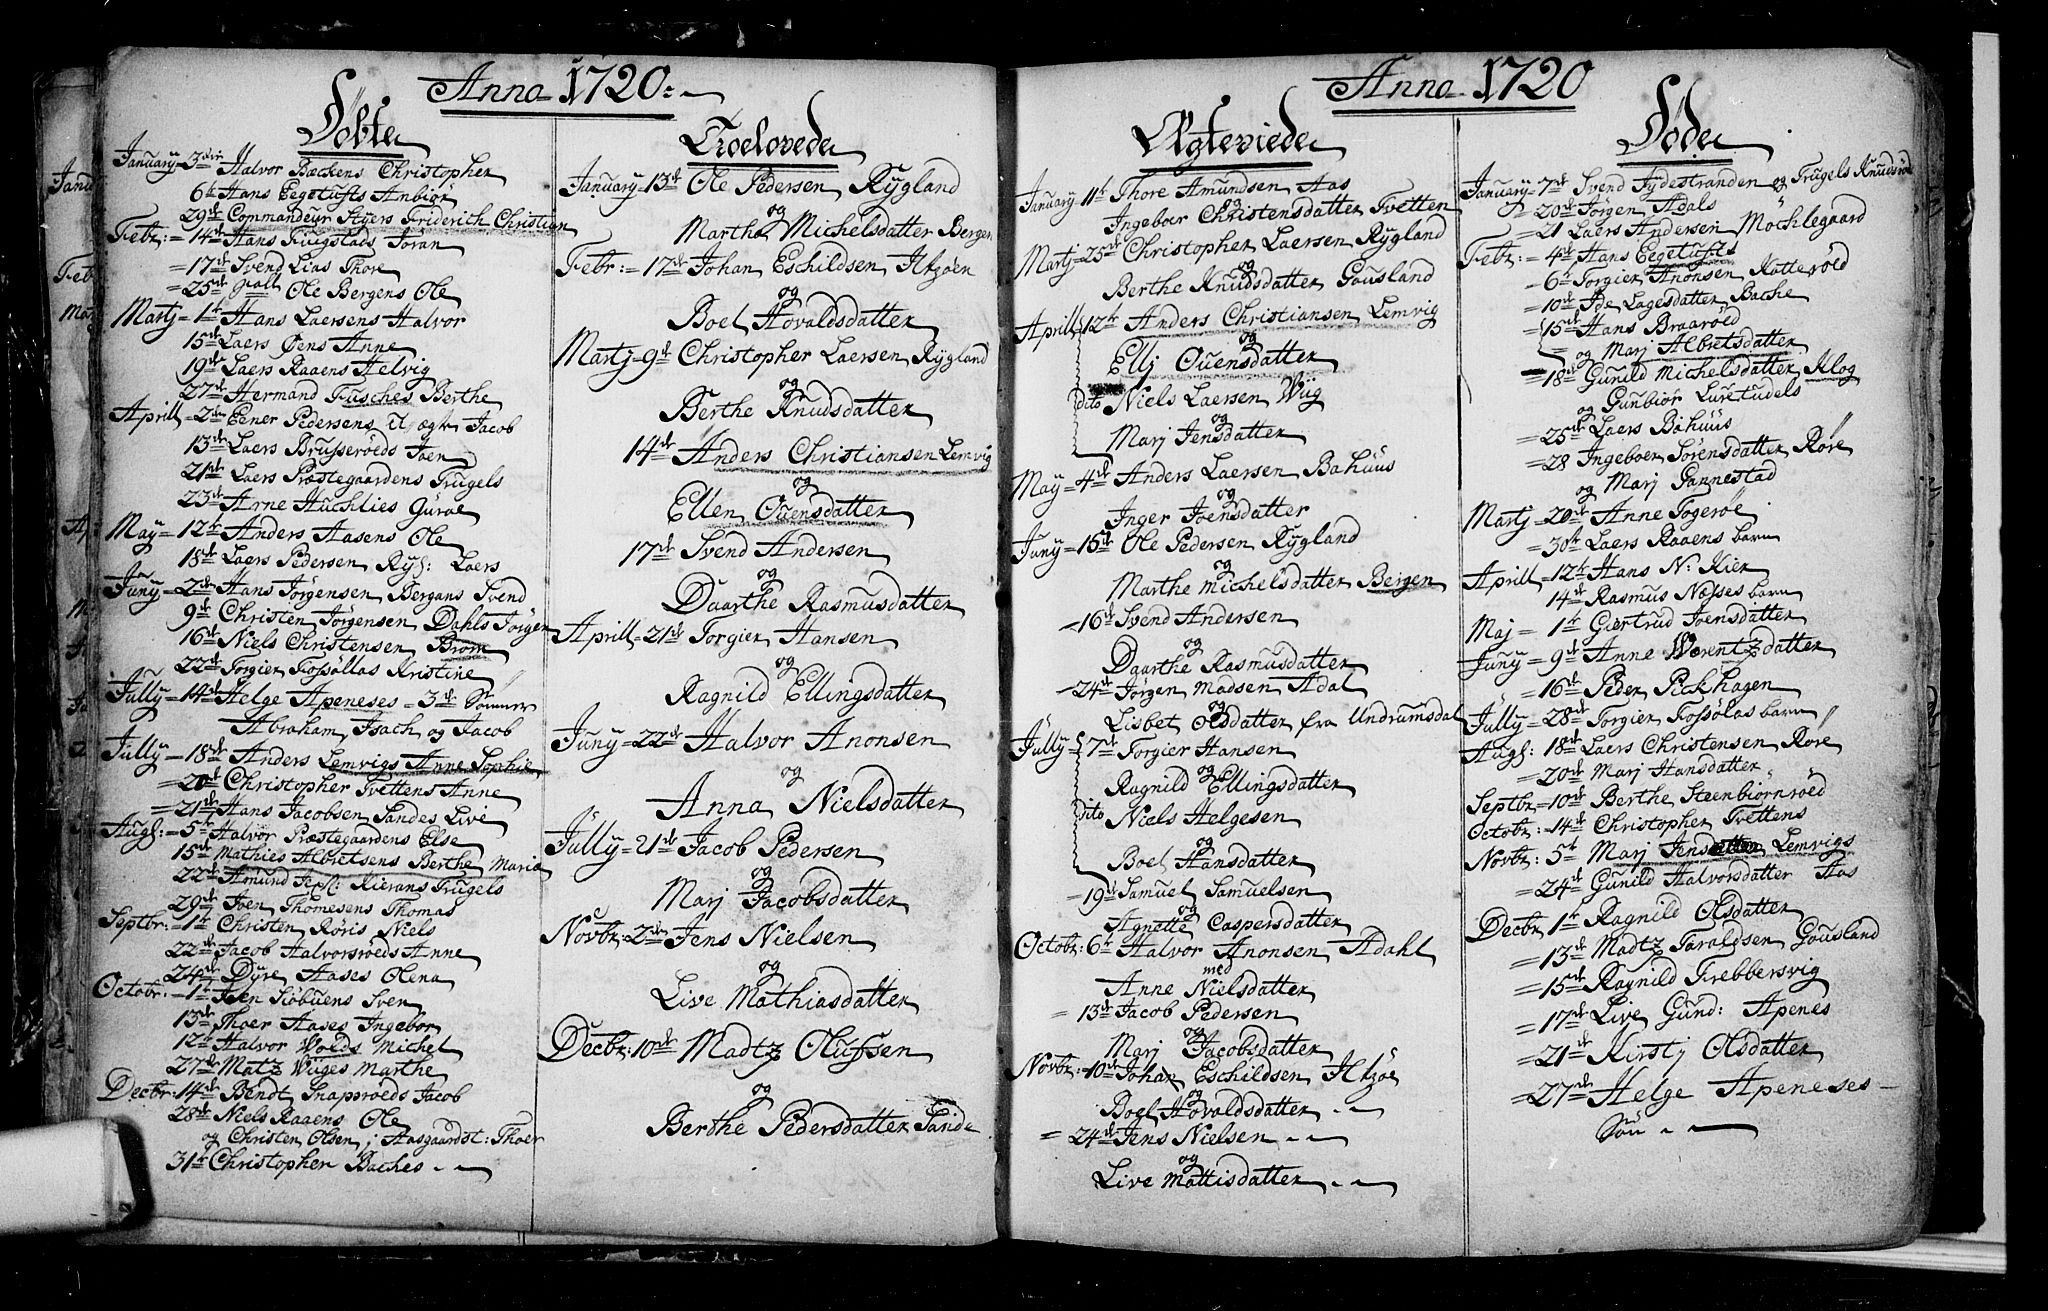 Anna 1720
Döbte
January = 3die Halvor Backens Christopher
6t Hans Eegetufts Anbiör
29de Commandeur Friderich Christian
Febr: = 14de Hans Fuugstads Söran
= 17de Svend Lias Thore
= 25de Ole Bergens Ole
Martj = 1t Hans Laersens Halvor
15de Laers Öens Anne
19de Laers Raaens Helvig
27de Hermand Fusches Berthe
Aprill = 2den Eener Pedersens Jacob
13de Laers Brusseröeds Joen
21de Laers Præstegaardens Trugels
23de Arne Huchlies Guroe
May = 12te Anders Aasens Ole
18de Laers Pedersen Ryg: Laers
Juny = 2den Hans Jörgensen Bergans Svend
9de Christen Jörgensen Dahls Jörgen
16de Niels Christensen Brom
22de Torgier Fossöllas Kristine
Jully = 14de Helge Apeneses = 3de Sönner
Abraham, Isach og Jacob
Jully = 18de Anders Lemvigs Anne Sophie
= 20de Christopher Tvettens Anne
= 21de Hans Jacobsen Sandes Live
Augs: = 5te Halvor Præstegaardens Else
15de Mathies Albretsens Berthe Maria
22de Amund Kierans Trugels
29de Joen Thomesens Thomas
Septbr: = 1t Christen Röris Niels
22de Jacob Halvorsröeds Anne
24de Dyre Aases Olena
Octobr: = 1t Jsen Siöbuens Sven
13de Thoer Aases Ingebor
12te Halvor Wolds Michel
27de Matz Wiiges Marthe
Decbr: 14de Bendt Snapsröeds Jacob
28de Niels Raaens Ole
og Christen Olsen i Aasgaardst: Thoer
31te Christopher Baches
Troelovede
January = 13de Ole Pedersen Rygland
og
Martha Michelsdatter Bergen
Febr: = 17de Johan Eschildsen
og
Boel Hovaldsdatter
Martj = 9de Christopher Laersen Rygland
og
Berthe Knudsdatter
14de Anders Christiansen Lemvig
og
Ellen Ouensdatter
17de Svend Andersen
og
Daarthe Rasmusdatter
Aprill = 21de Torgier Hansen
og
Ragnild Ellingsdatter
Juny = 22de Halvor Anonsen
og
Anna Nielsdatter
Jully = 21de Jacob Pedersen
og
Marj Jacobsdatter
Novbr: 2den Jens Nielsen
og
Live Mathiasdatter
Decbr: 10de Madtz Olufsen
og
Berthe Pedersdatter Sande
Anna 1720
Ægteviede
January 11te Thore Amundsen Aas
og
Ingeboer Christensdatter Tvetten
Martj = 25de Christopher Laersen Rygland
og
Berthe Knudsdatter Gousland
Aprill 12te Anders Christiansen Lemvig
og
Ellj Ouensdatter
dito Niels Laersen Wiig
og
Marj Jensdatter
May = 4de Anders Laersen Bahuus
og
Inger Joensdatter
Juny = 15de Ole Pedersen Rygland
og
Marthe Michelsdatter Bergen
= 16de Svend Andersen
og
Daarthe Rasmusdatter
= 24de Jörgen Madsen Adal
og
Lisbet Olsdatter fra Undrumsdal
Jully = 7de Torgier Hansen
og
Ragnild Ellingsdatter
dito Niels Helgesen
og
Boel Hansdatter
= 19de Samuel Samuelsen
og
Agnette Caspersdatter
Octobr: 6te Halvor Anonsen Adahl
med
Anne Nielsdatter
= 13de Jacob Pedersen
og
Marj Jacobsdatter
Novbr: = 10de Johan Eschildsen
og
Boel Hovaldsdatter
= 24de Jens Nielsen
og
Live Mattisdatter
Döde
January = 7de Svend Sydestranden og Trugels Knudsröe
= 20de Jörgen Adals
= 21 Laers Andersen Mochlegaard
Febr: = 4de Hans Eegetufts
= 6te Torgier Anonsen Katteröed
= 10de Ide Lagesdatter Bache
= 15de Hans Braaröed
og Marj Albretsdatter
= 18de Gunild Michelsdatter Klog
og Gunbior Lurestudels
= 25de Laers Bahuus
= 28 Ingeboer Sörensdatter Röre
og Marj Pannestad
Martj = 20de Anne Fogeröe
= 30te Laers Raaens barn
Aprill = 12te Hans N: Kier
14de Rasmus Nesses barn
Maj = 1t Giertrud Joensdatter
Juny = 9de Anne Worentzdatter
= 16de Peder Pickhagen
Jully = 28de Torgier Fossölas barn
Augs: 18de Laers Christensen Röre
= 20de Marj Hansdatter
Septbr = 10de Berthe Steenbiörnröed
Octobr: = 14de Christopher Tvettens
Novbr: 5te Marj Lemvigs
= 24de Gunild Halvorsdatter Aas
Decbr: 1t Ragnild Olsdatter
= 13de Madtz Taraldsen Gousland
= 15de Ragnild Trebbersvig
= 17de Live Gund: Apenes
= 21de Kirstj Olsdatter
= 27de Helge Apeneses
Sön